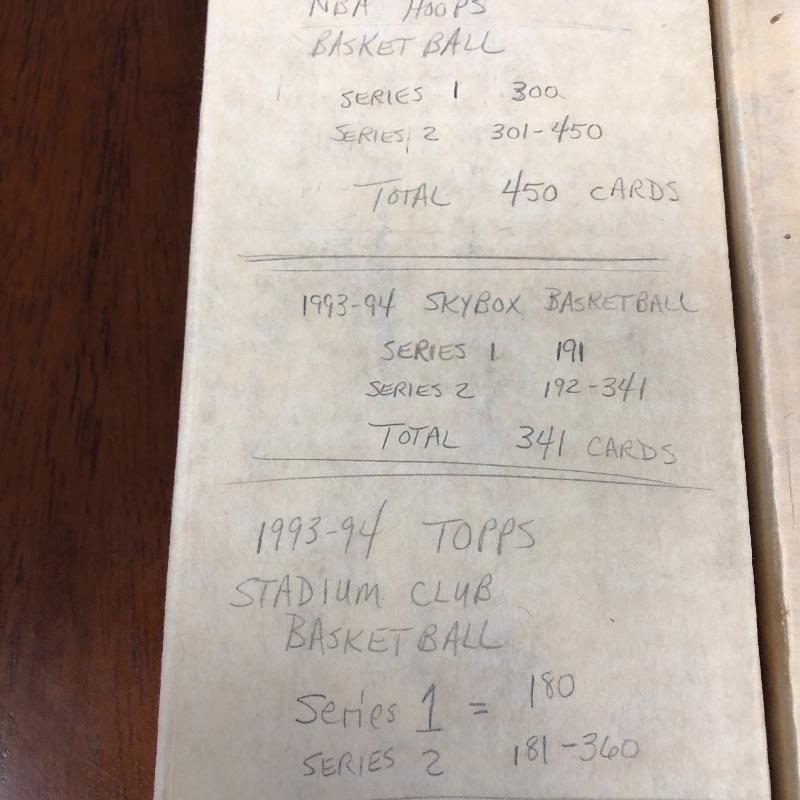 NBA HOOPS
BASKETBALL
SERIES 1 300
SERIES 2 301-450
TOTAL 450 CARDS
1993-94 SKYBOX BASKETBALL
SERIES 1 191
SERIES 2 192-341
TOTAL 341 CARDS
1993-94 TOPPS
STADIUM CLUB
BASKETBALL
Series 1 = 180
SERIES 2 181-360